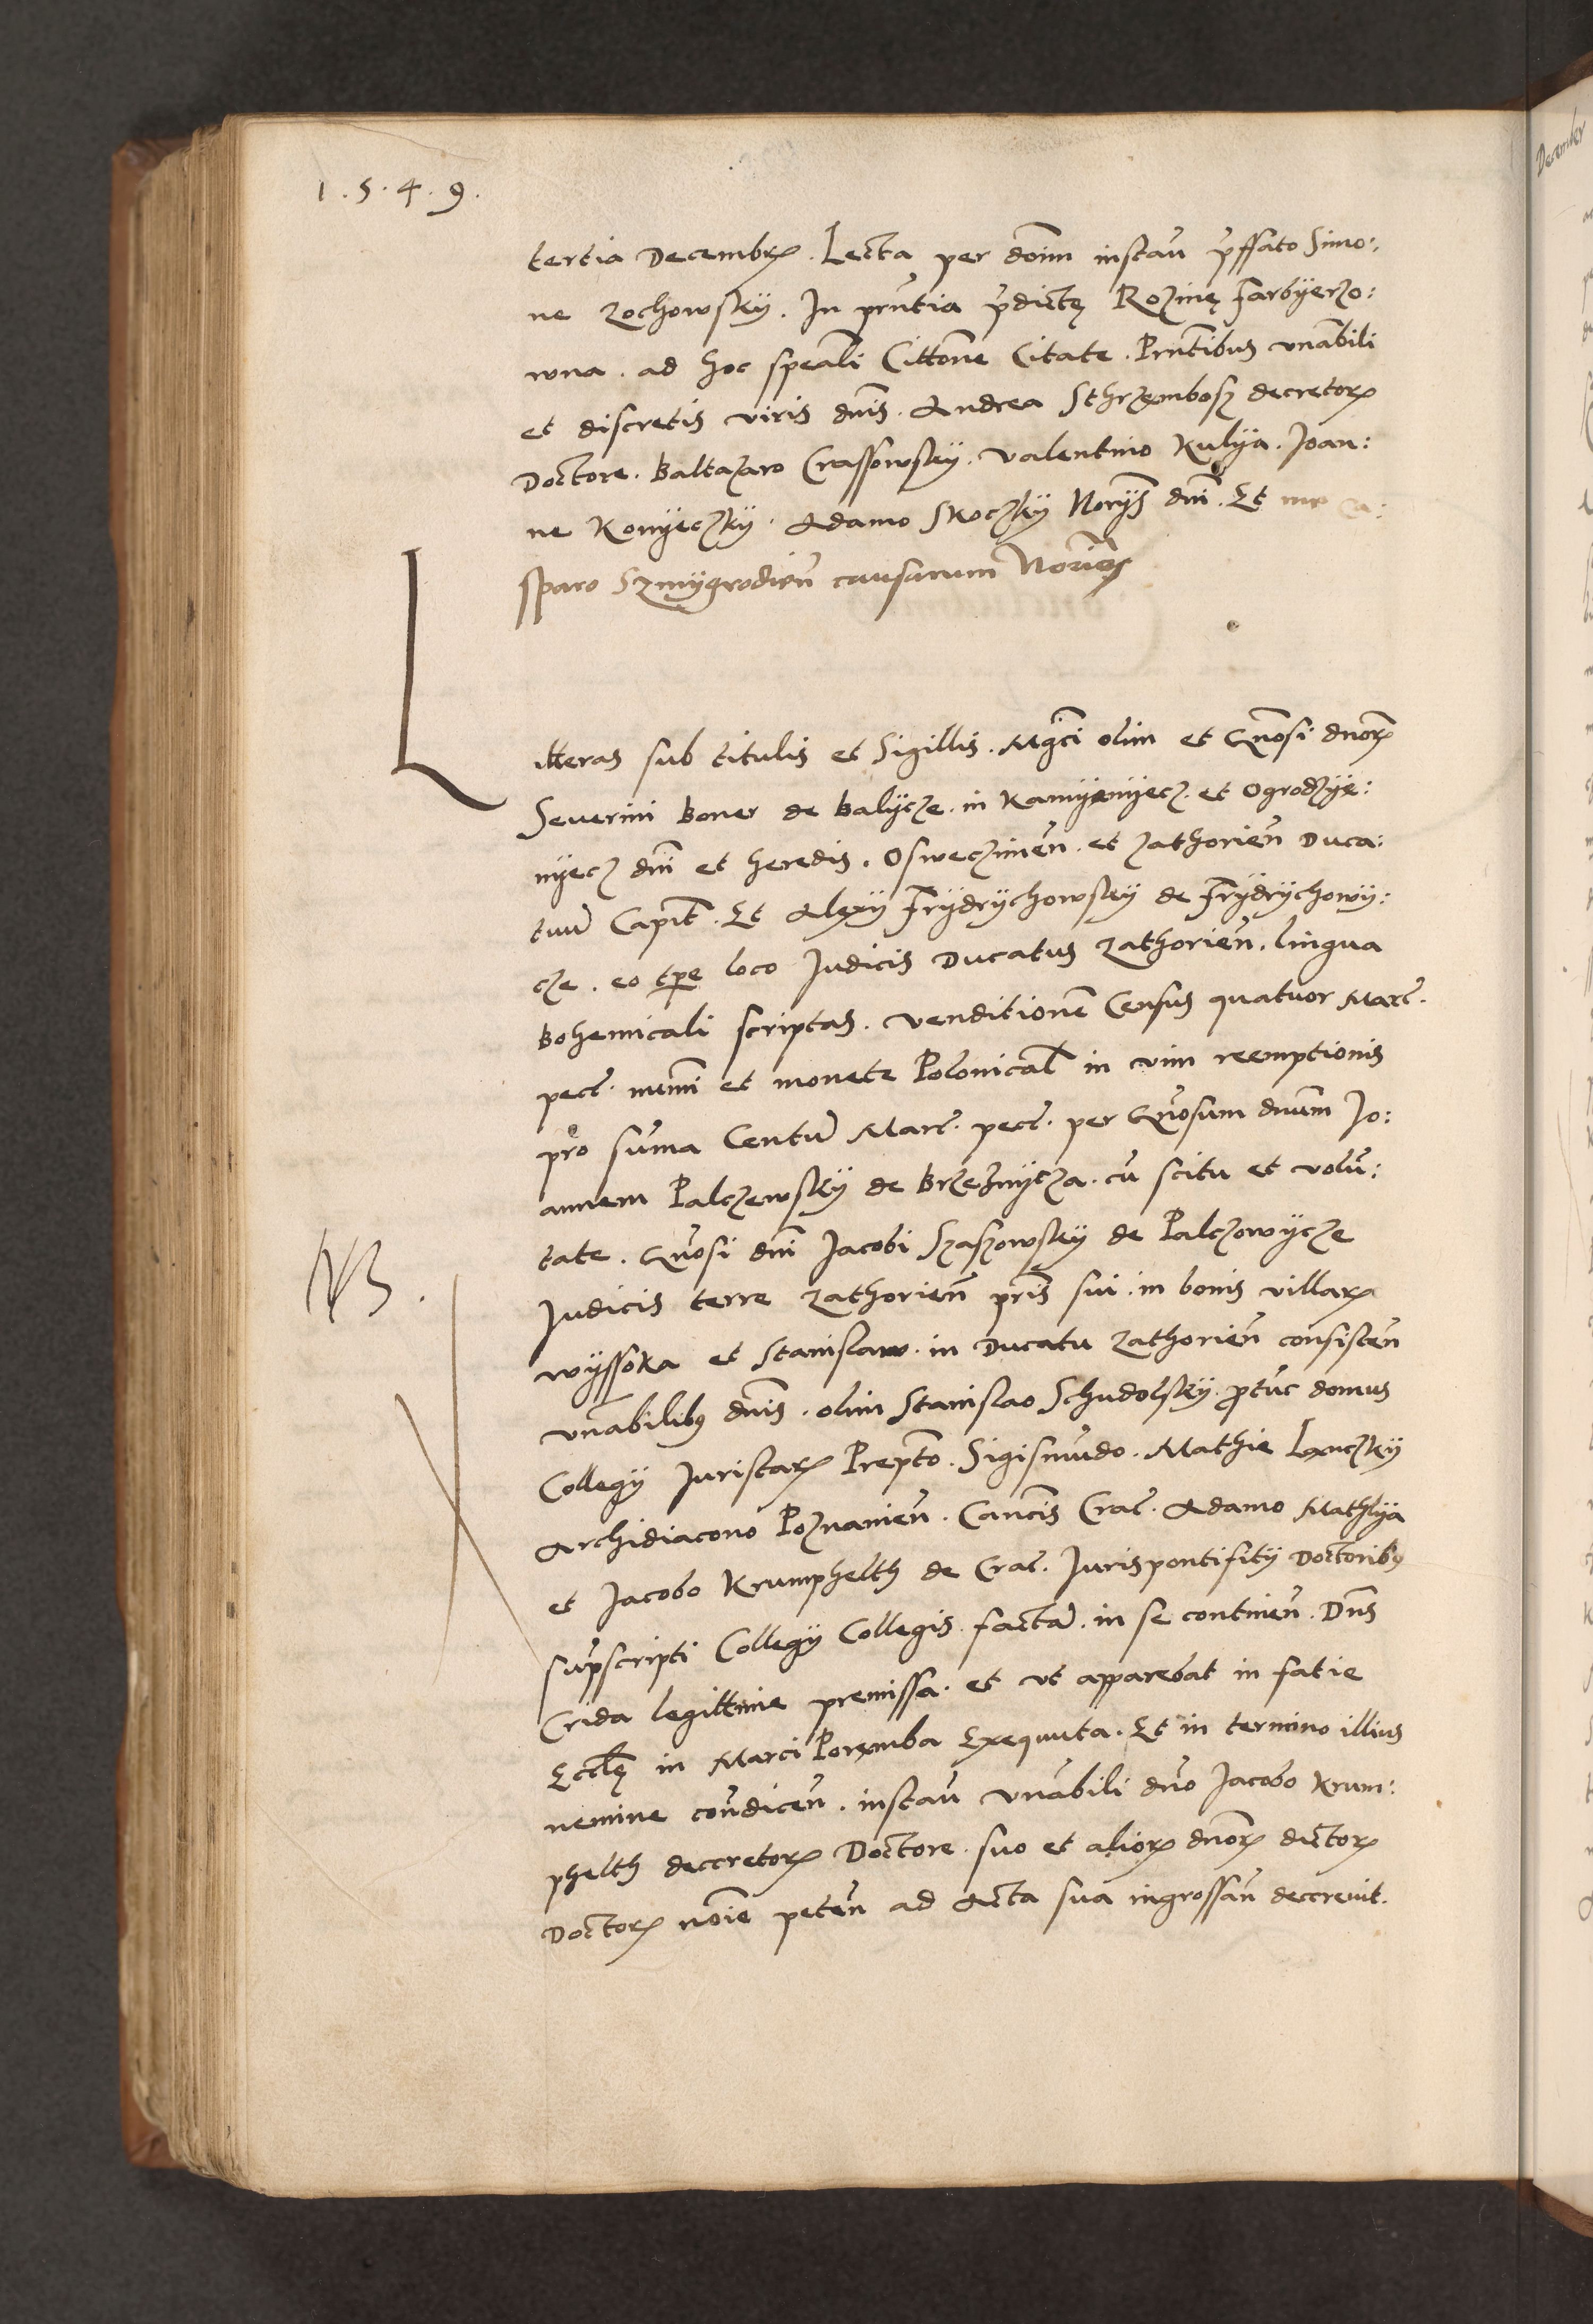 1.5.4.9.
tertia Decembrꝭ. Lecta per dom̄ instan̄ p̄ffato Simo:
ne Zochowskÿ. In pn̄tia p̄dictę Rozinę Farbÿerzo:
wna. ad hoc spēali Citt̄one Citate. Pn̄tibus vn̄abili
et discretis viris dn̄is. Andrea Sthrzembosz decretoꝝ
Doctore. Baltazaro Crassowskÿ. Valentino Kulÿa. Joan:
ne Konÿeczkÿ. Adamo Skoczkÿ Norÿs dn̄i. Et me Ca:
sparo Szmÿgrodien̄ causarum Norio
Litteras sub titulis et Sigillis. Mḡci olim et Gn̄osi dnoꝝ
Severini Boner de Balÿcze. in Kamÿenÿecz. et Ogrodzÿe:
nÿecz dn̄i et heredis. Osweczimen̄. et Zathorien̄ Duca:
tuū Capit̄. Et Alexÿ Frÿdrÿchowskÿ de Frÿdrÿchowÿ:
cze. eo tp̄e loco Judicis Ducatus Zathorien̄. lingua
Bohemicali scriptas. venditionē Census quatuor Marc̄.
pecc̄. num̄i et monete Polonical̄ in vim reemptionis
pro sum̄a Centū Marc̄. pecc̄. per Gn̄osum dnūm Jo:
annem Palczewskÿ de Brzeznÿcza. cū scitu et volū:
tate. Gn̄osi dn̄i Jacobi Szaszowskÿ de Palczowÿcze
NB.
Judicis terre Zathorien̄ pr̄is sui. in bonis villaꝝ
Wÿssoka et Stanislaw. in Ducatu Zathorien̄ consisten̄
vn̄abilibꝰ dn̄is. olim Stanislao Schudolskÿ. p̄tūc domus
Collegÿ Juristaꝝ Prep̄to. Sigismūdo. Mathie Lanczkÿ
Archidiacono Poznanien̄. Canc̄is Crac̄. Adamo Mathÿa
et Jacobo Krumphelth de Crac̄. Juris pontifitÿ Doctoribꝰ
sup̄scripti Collegÿ Collegis. factā. in se continen̄. Dn̄s
Crida legittime premissa. et vt apparebat in fatie
Eccl̄ę in Marci Poremba Exequuta. Et in termino illius
nemine con̄dicen̄. instan̄ vn̄abili dn̄o Jacobo Krum:
phelth decretoꝝ Doctore. suo et alioꝝ dn̄oꝝ dictoꝝ
Doctoꝝ no̅ie peten̄ ad Acta sua ingrossan̄ decrevit.
December